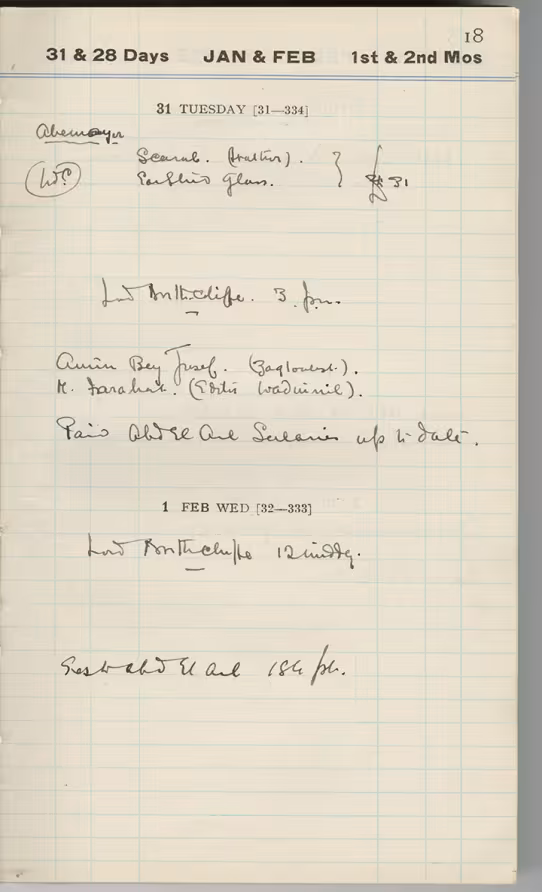 18
31 & 28 Days JAN & FEB 1st & 2nd Mos
31 TUESDAY [31—334]
Abemayor
Scarab.
Glass. £ 31
Lord Northcliffe. 3. pm.
Amin Bey Jusef. (Zagloulist.).
M. Farahat. (Editor Wadinnil).
Paid Abd El Aal Salaries up to date.
1 FEB WED [32—333]
Lord Northcliffe 12 midday.
Abd El Aal